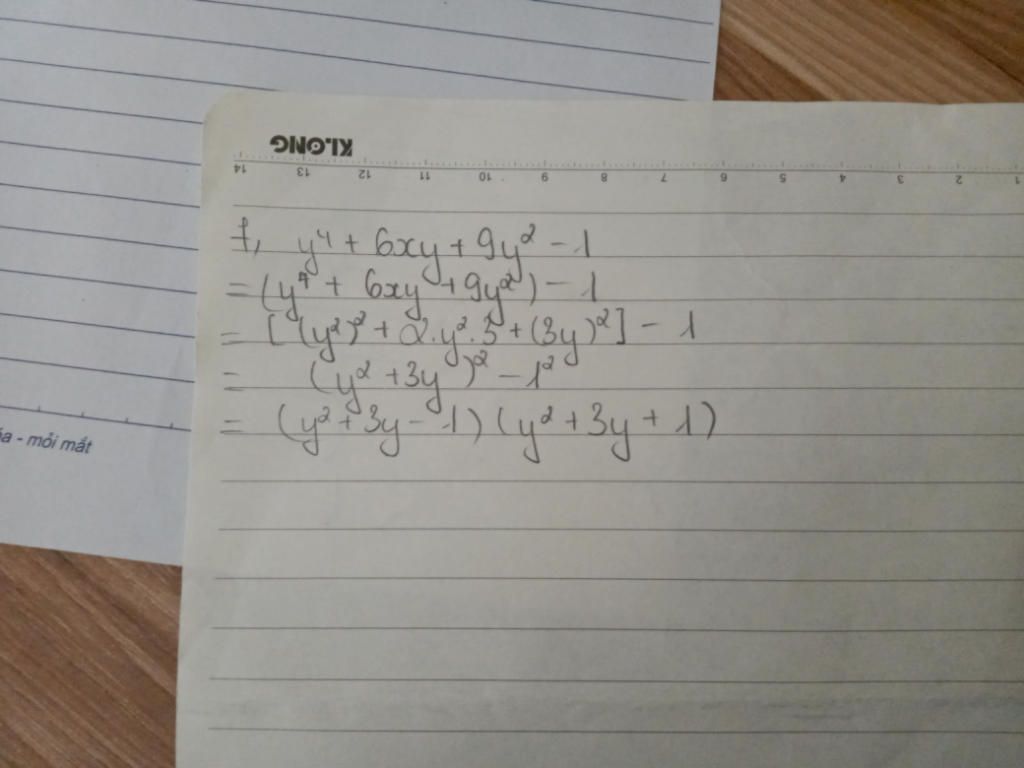 KLONG
14 13 12 11 10 9 8 7 6 5 4 3 2 1
f, y⁴ + 6xy + 9y² - 1
= (y⁴ + 6xy + 9y²) - 1
= [(y²)² + 2.y².3 + (3y)²] - 1
= (y² + 3y)² - 1²
= (y² + 3y - 1)(y² + 3y + 1)
- mỏi mắt